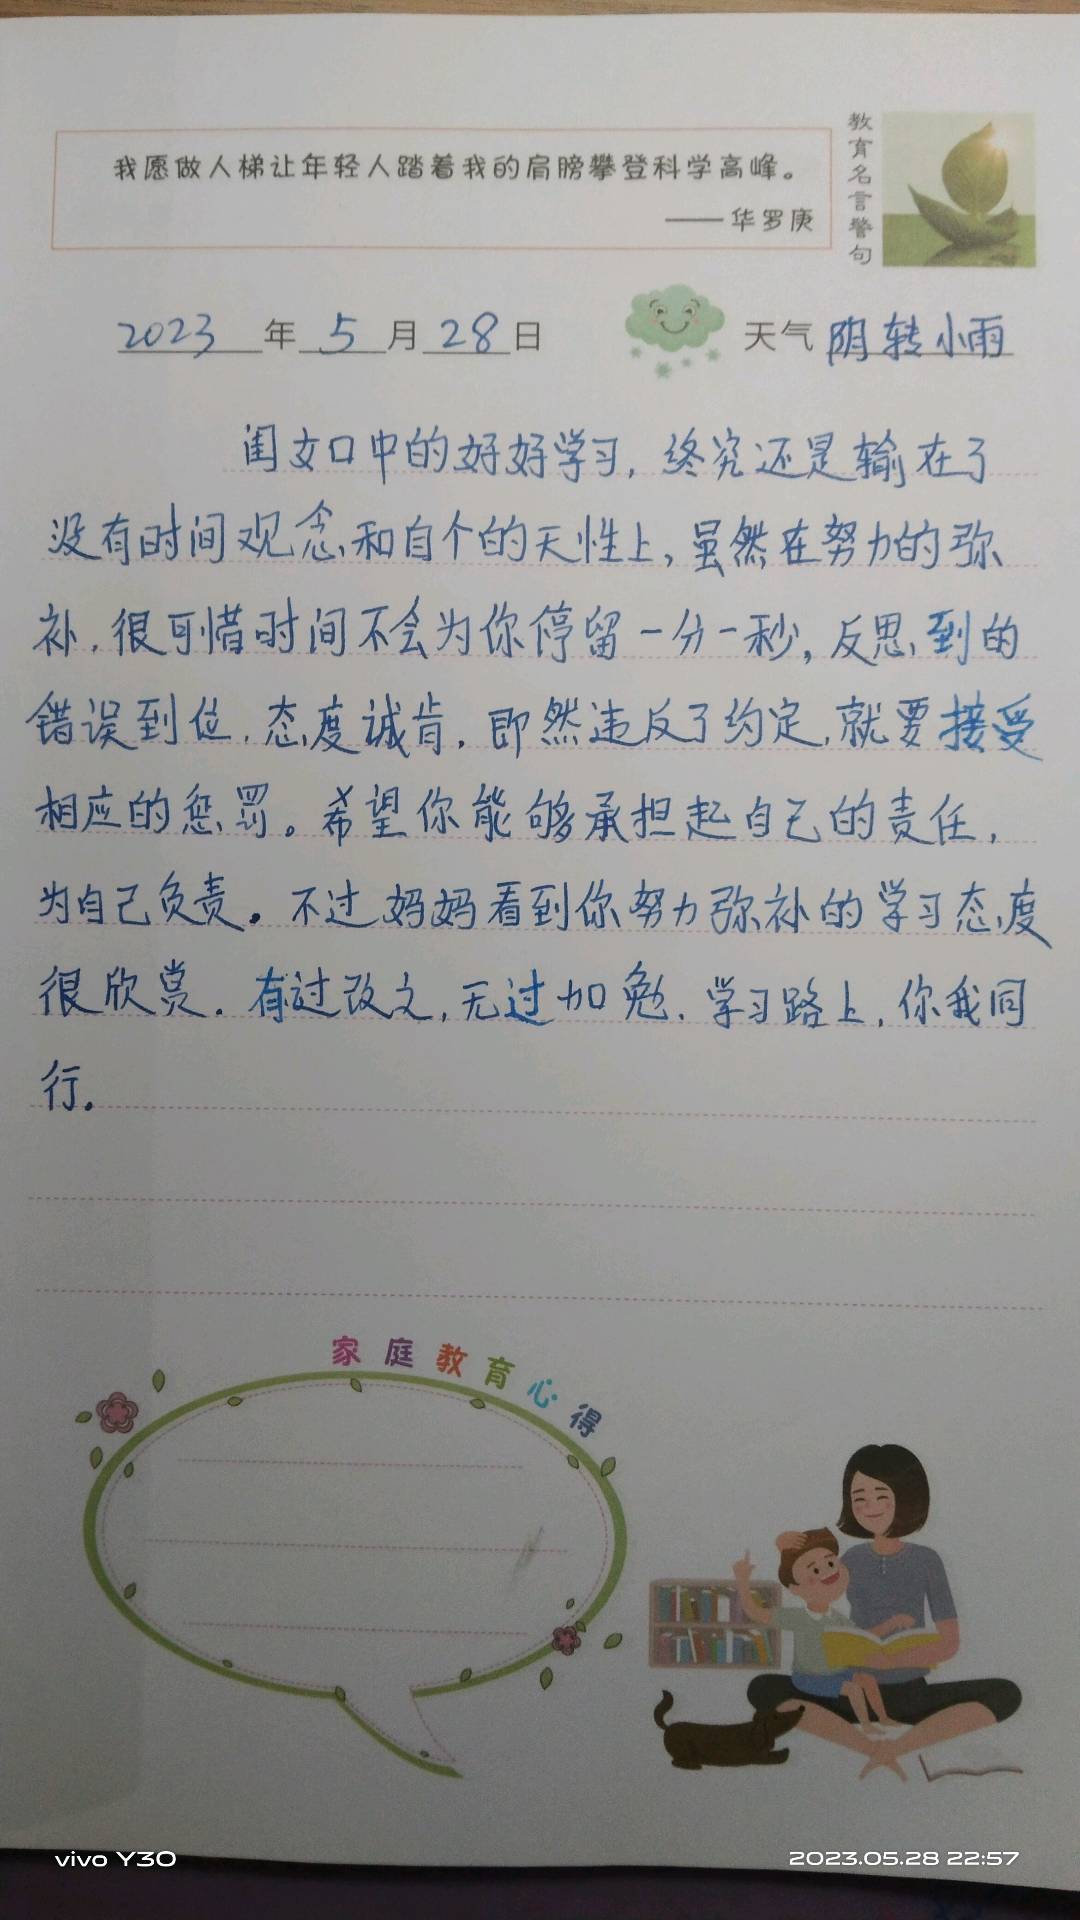 我愿做人梯让年轻人踏着我的肩膀攀登科学高峰。
——华罗庚
教育名言警句
2023年5月28日 天气 阴转小雨
闺女口中的好好学习，终究还是输在了
没有时间观念和自个的天性上，虽然在努力的弥
补，很可惜时间不会为你停留一分一秒，反思到的
错误到位，态度诚肯，即然违反了约定，就要接受
相应的惩罚。希望你能够承担起自己的责任，
为自己负责。不过妈妈看到你努力弥补的学习态度
很欣赏。有过改之，无过加勉，学习路上，你我同
行。
家庭教育心得
vivo Y30
2023.05.28 22:57